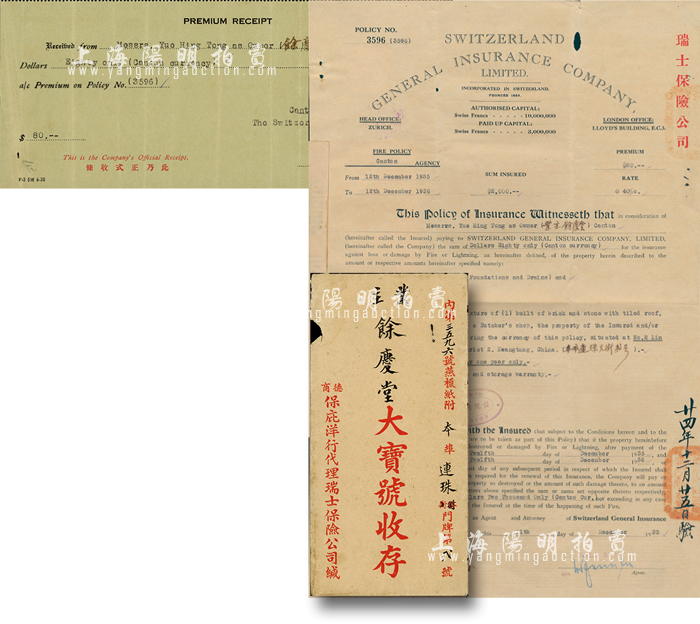 PREMIUM RECEIPT
Received from Messrs. Yue Hing Tong as Owner
Dollars Eighty only (Canton currency)
a/c Premium on Policy No. (3596)
Cant
The Switzer
$ 80.--
This is the Company's Official Receipt.
此乃正式收條
上海陽明拍賣
www.yangmingauction.com
POLICY NO.
3596 (3596)
SWITZERLAND
GENERAL INSURANCE COMPANY,
LIMITED.
INCORPORATED IN SWITZERLAND.
FOUNDED 1869.
HEAD OFFICE:
ZURICH.
AUTHORISED CAPITAL:
Swiss Francs - - - - 10,000,000
PAID UP CAPITAL:
Swiss Francs - - - - 3,000,000
LONDON OFFICE:
LLOYD'S BUILDING, E.C.3.
瑞士保險公司
FIRE POLICY
Canton AGENCY
PREMIUM
$80.--
From 12th December 1935
SUM INSURED
RATE
To 12th December 1936
$2,000.--
@ 40%.
This Policy of Insurance Witnesseth that in consideration of
Messrs. Yue Hing Tong as Owner Canton
(hereinafter called the Insured) paying to SWITZERLAND GENERAL INSURANCE COMPANY, LIMITED,
(hereinafter called the Company) the sum of Dollars Eighty only (Canton currency) for the insurance
against loss or damage by Fire or Lightning, as hereinafter defined, of the property herein described to the
amount or respective amounts hereinafter specified namely:
Foundations and Drains) and
上海陽明拍賣
www.yangmingauction.com
ture of (1) built of brick and stone with tiled roof,
a Butcher's shop, the property of the Insured and/or
ring the currency of this policy, situated at No.8 Lin
rict 2, Kwangtung, China.
or one year only.
and storage warranty.
with the Insured that subject to the Conditions herein and to the
are to be taken as part of this Policy) that if the property hereinbefore
stroyed or damaged by Fire or Lightning, after payment of the
Twelfth day of December 1935
Twelfth day of December 1936
st day of any subsequent period in respect of which the Insured shall
required for the renewal of this Insurance, the Company will pay or
property so destroyed or the amount of such damage thereto, to an amount
tters above specified the sum or sums set opposite thereto respectively
lars Two Thousand Only (Canton Cur. nor exceeding in any case
the Insured at the time of the happening of such Fire.
s Agent and Attorney of Switzerland General Insurance
day of December 1935
Agent.
廿四年十二月廿五日驗
內第三五九六號燕梳紙附
本埠連珠
門牌第八號
業主
餘慶堂大寶號收存
德商
保庇洋行代理瑞士保險公司緘
上海陽明拍賣
www.yangmingauction.com
上海陽明拍賣
www.yangmingauction.com